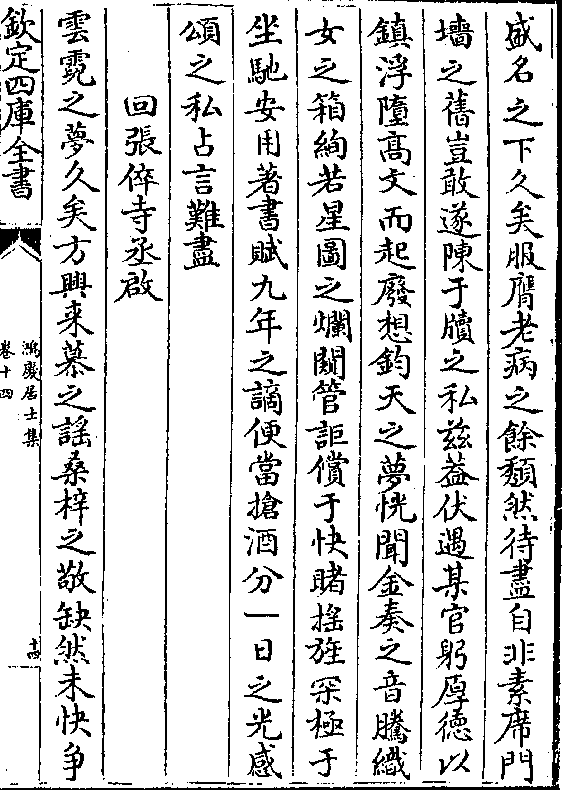 盛名之下久矣服膺老病之餘頽然待盡自非素席門
墻之舊豈敢遂陳于牘之私兹葢伏遇某官躬厚德以
鎮浮隨髙文而起廢想鈞天之夢恍聞金奏之音騰織
女之箱絢若星圖之爛闚管詎償于快睹揺旌罙極于
坐馳安用著書賦九年之謫便當搶酒分一日之光感
頌之私占言難盡
回張倅寺丞啟
雲霓之夢久矣方興来慕之謡桑梓之敬缺然未快爭
欽定四庫全書
鴻慶居士集
卷十四
十四